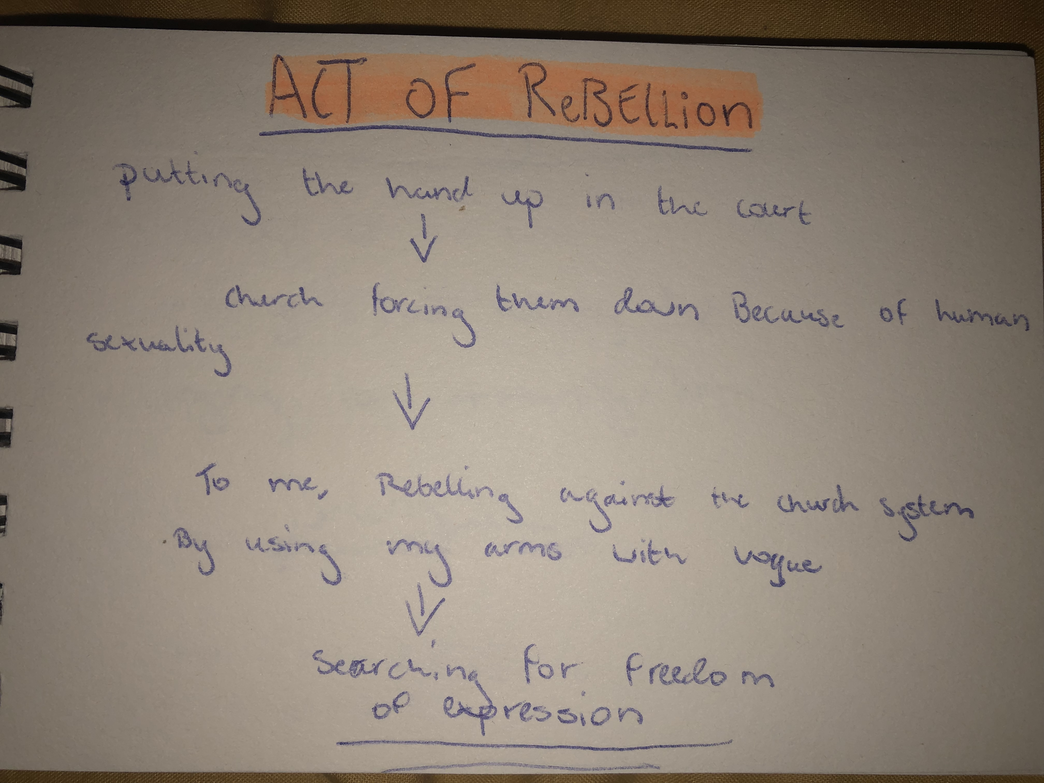 ACT OF ReBELLion
putting the hand up in the court
church forcing them down Because of human
sexuality
To me, Rebelling against the church system
By using my arms with vogue
Searching for freedom
of expression